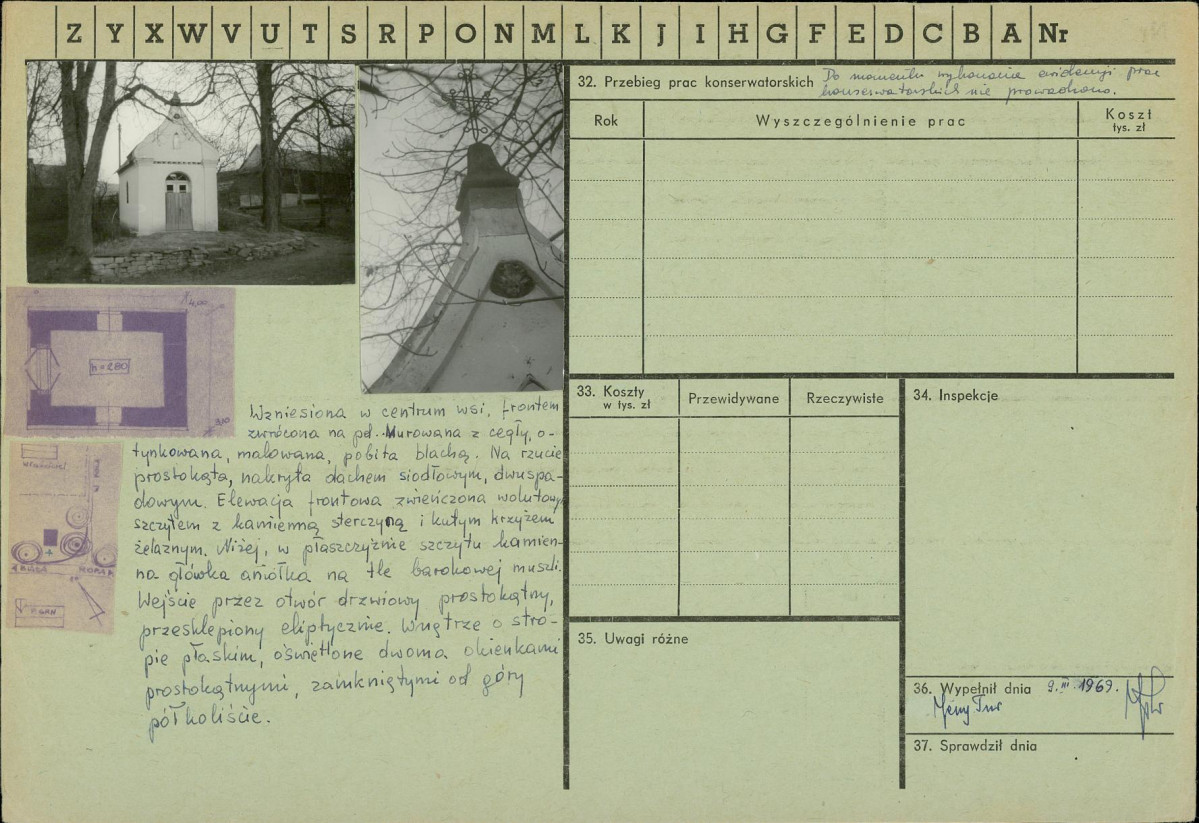 Z Y X W V U T S R P O N M L K J I H G F E D C B A Nr
32. Przebieg prac konserwatorskich Do momentu wykonania ewidencji prac
konserwatorskich nie prowadzono.
Rok Wyszczególnienie prac Koszt
tys. zł
4,00
h = 280
Wzniesiona w centrum wsi, frontem
zwrócona na pd. Murowana z cegły, o-
tynkowana, malowana, pobita blachą. Na rzucie
prostokąta, nakryta dachem siodłowym, dwuspa-
dowym. Elewacja frontowa zwieńczona wolutowym
szczytem z kamienną sterczyną i kutym krzyżem
żelaznym. Niżej, w płaszczyźnie szczytu kamien-
na główka aniołka na tle barokowej muszli.
Wejście przez otwór drzwiowy prostokątny,
przesklepiony eliptycznie. Wnętrze o stro-
pie płaskim, oświetlone dwoma okienkami
prostokątnymi, zamkniętymi od góry
półkoliście.
33. Koszty
w tys. zł
Przewidywane Rzeczywiste
34. Inspekcje
35. Uwagi różne
36. Wypełnił dnia 9.III.1969.
37. Sprawdził dnia